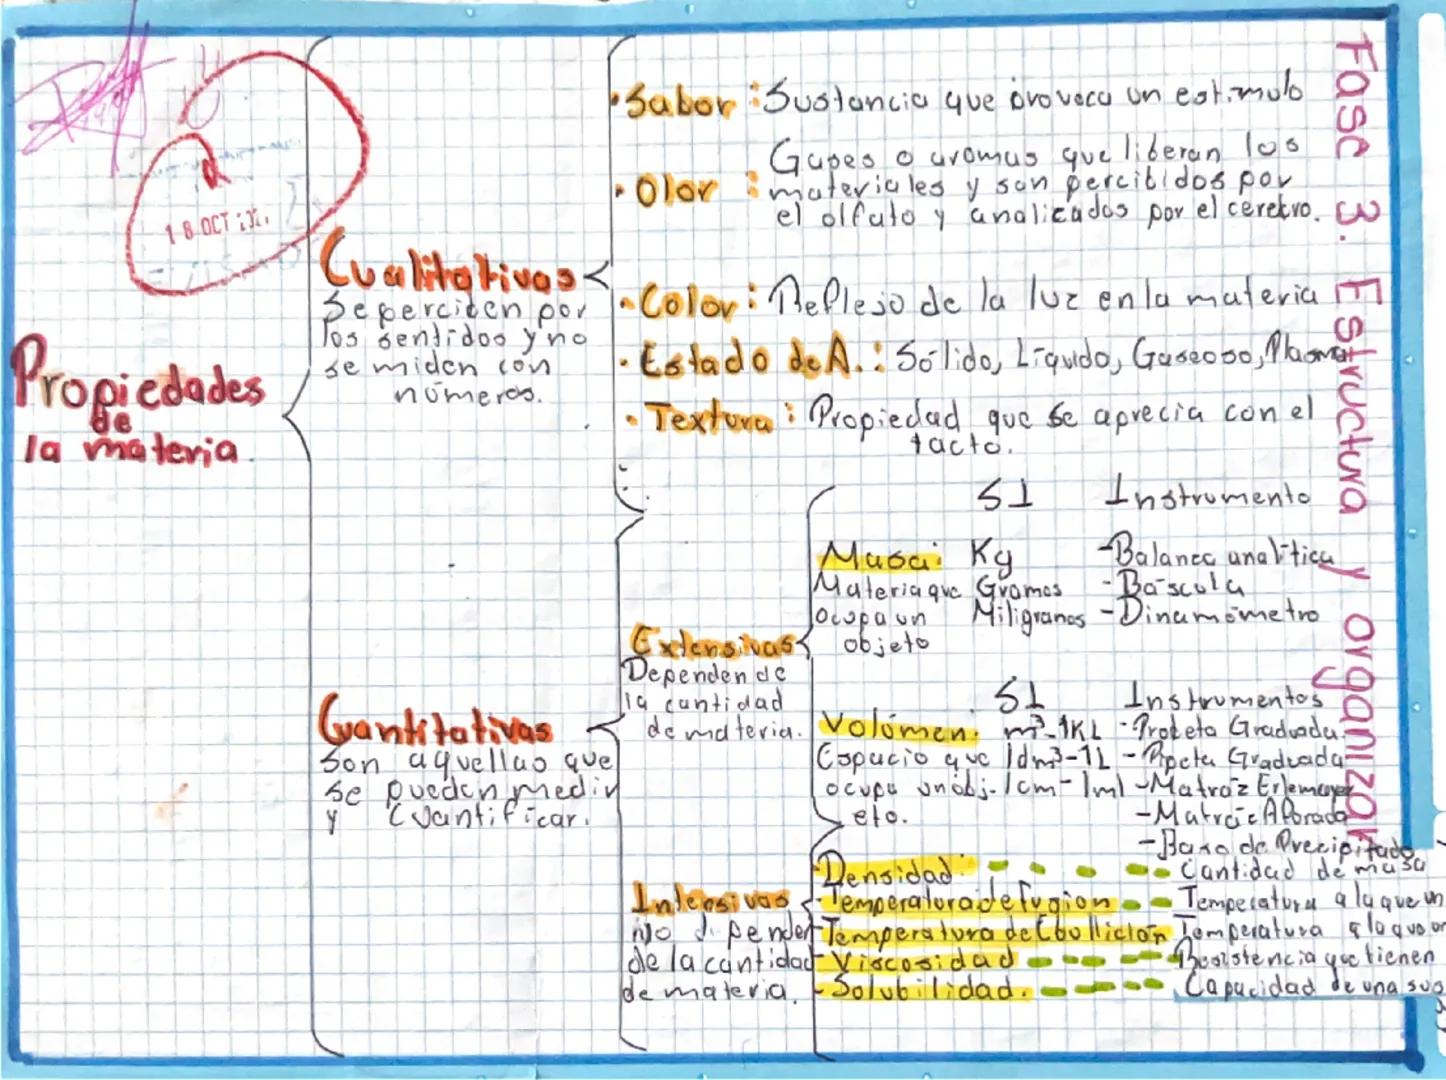 Fase 3. Estructura y organizar
18 OCT
Propiedades
de
la materia.
Cualitativas
Se perciben por
los sentidos y no
se miden con
números.
• Sabor: Sustancia que provoca un estimulo
• Olor: Gases o aromas que liberan los
materiales y son percibidos por
el olfato y analizados por el cerebro.
• Color: Reflejo de la luz en la materia
• Estado de A.: Sólido, Líquido, Gaseoso, Plasma
• Textura: Propiedad que se aprecia con el
tacto.
Cuantitativas
Son aquellas que
se pueden medir
y cuantificar.
Extensivas
Dependen de
la cantidad
de materia.
SI Instrumento
Masa: Kg -Balanza analítica
Materia que Gramos -Báscula
ocupa un Miligramos -Dinamómetro
objeto
SI Instrumentos
Volúmen: m³-1KL -Probeta Graduada
Espacio que 1dm³-1L -Pipeta Graduada
ocupa un obj- 1cm-1ml -Matraz Erlemeyer
eto. -Matraz Aforado
-Baso de Precipitado
Intensivas
No dependen
de la cantidad
de materia.
-Densidad Cantidad de masa
-Temperatura de fusion Temperatura a la que un
-Temperatura de Ebullición Temperatura a la que
-Viscosidad Resistencia que tienen
-Solubilidad. Capacidad de una sus